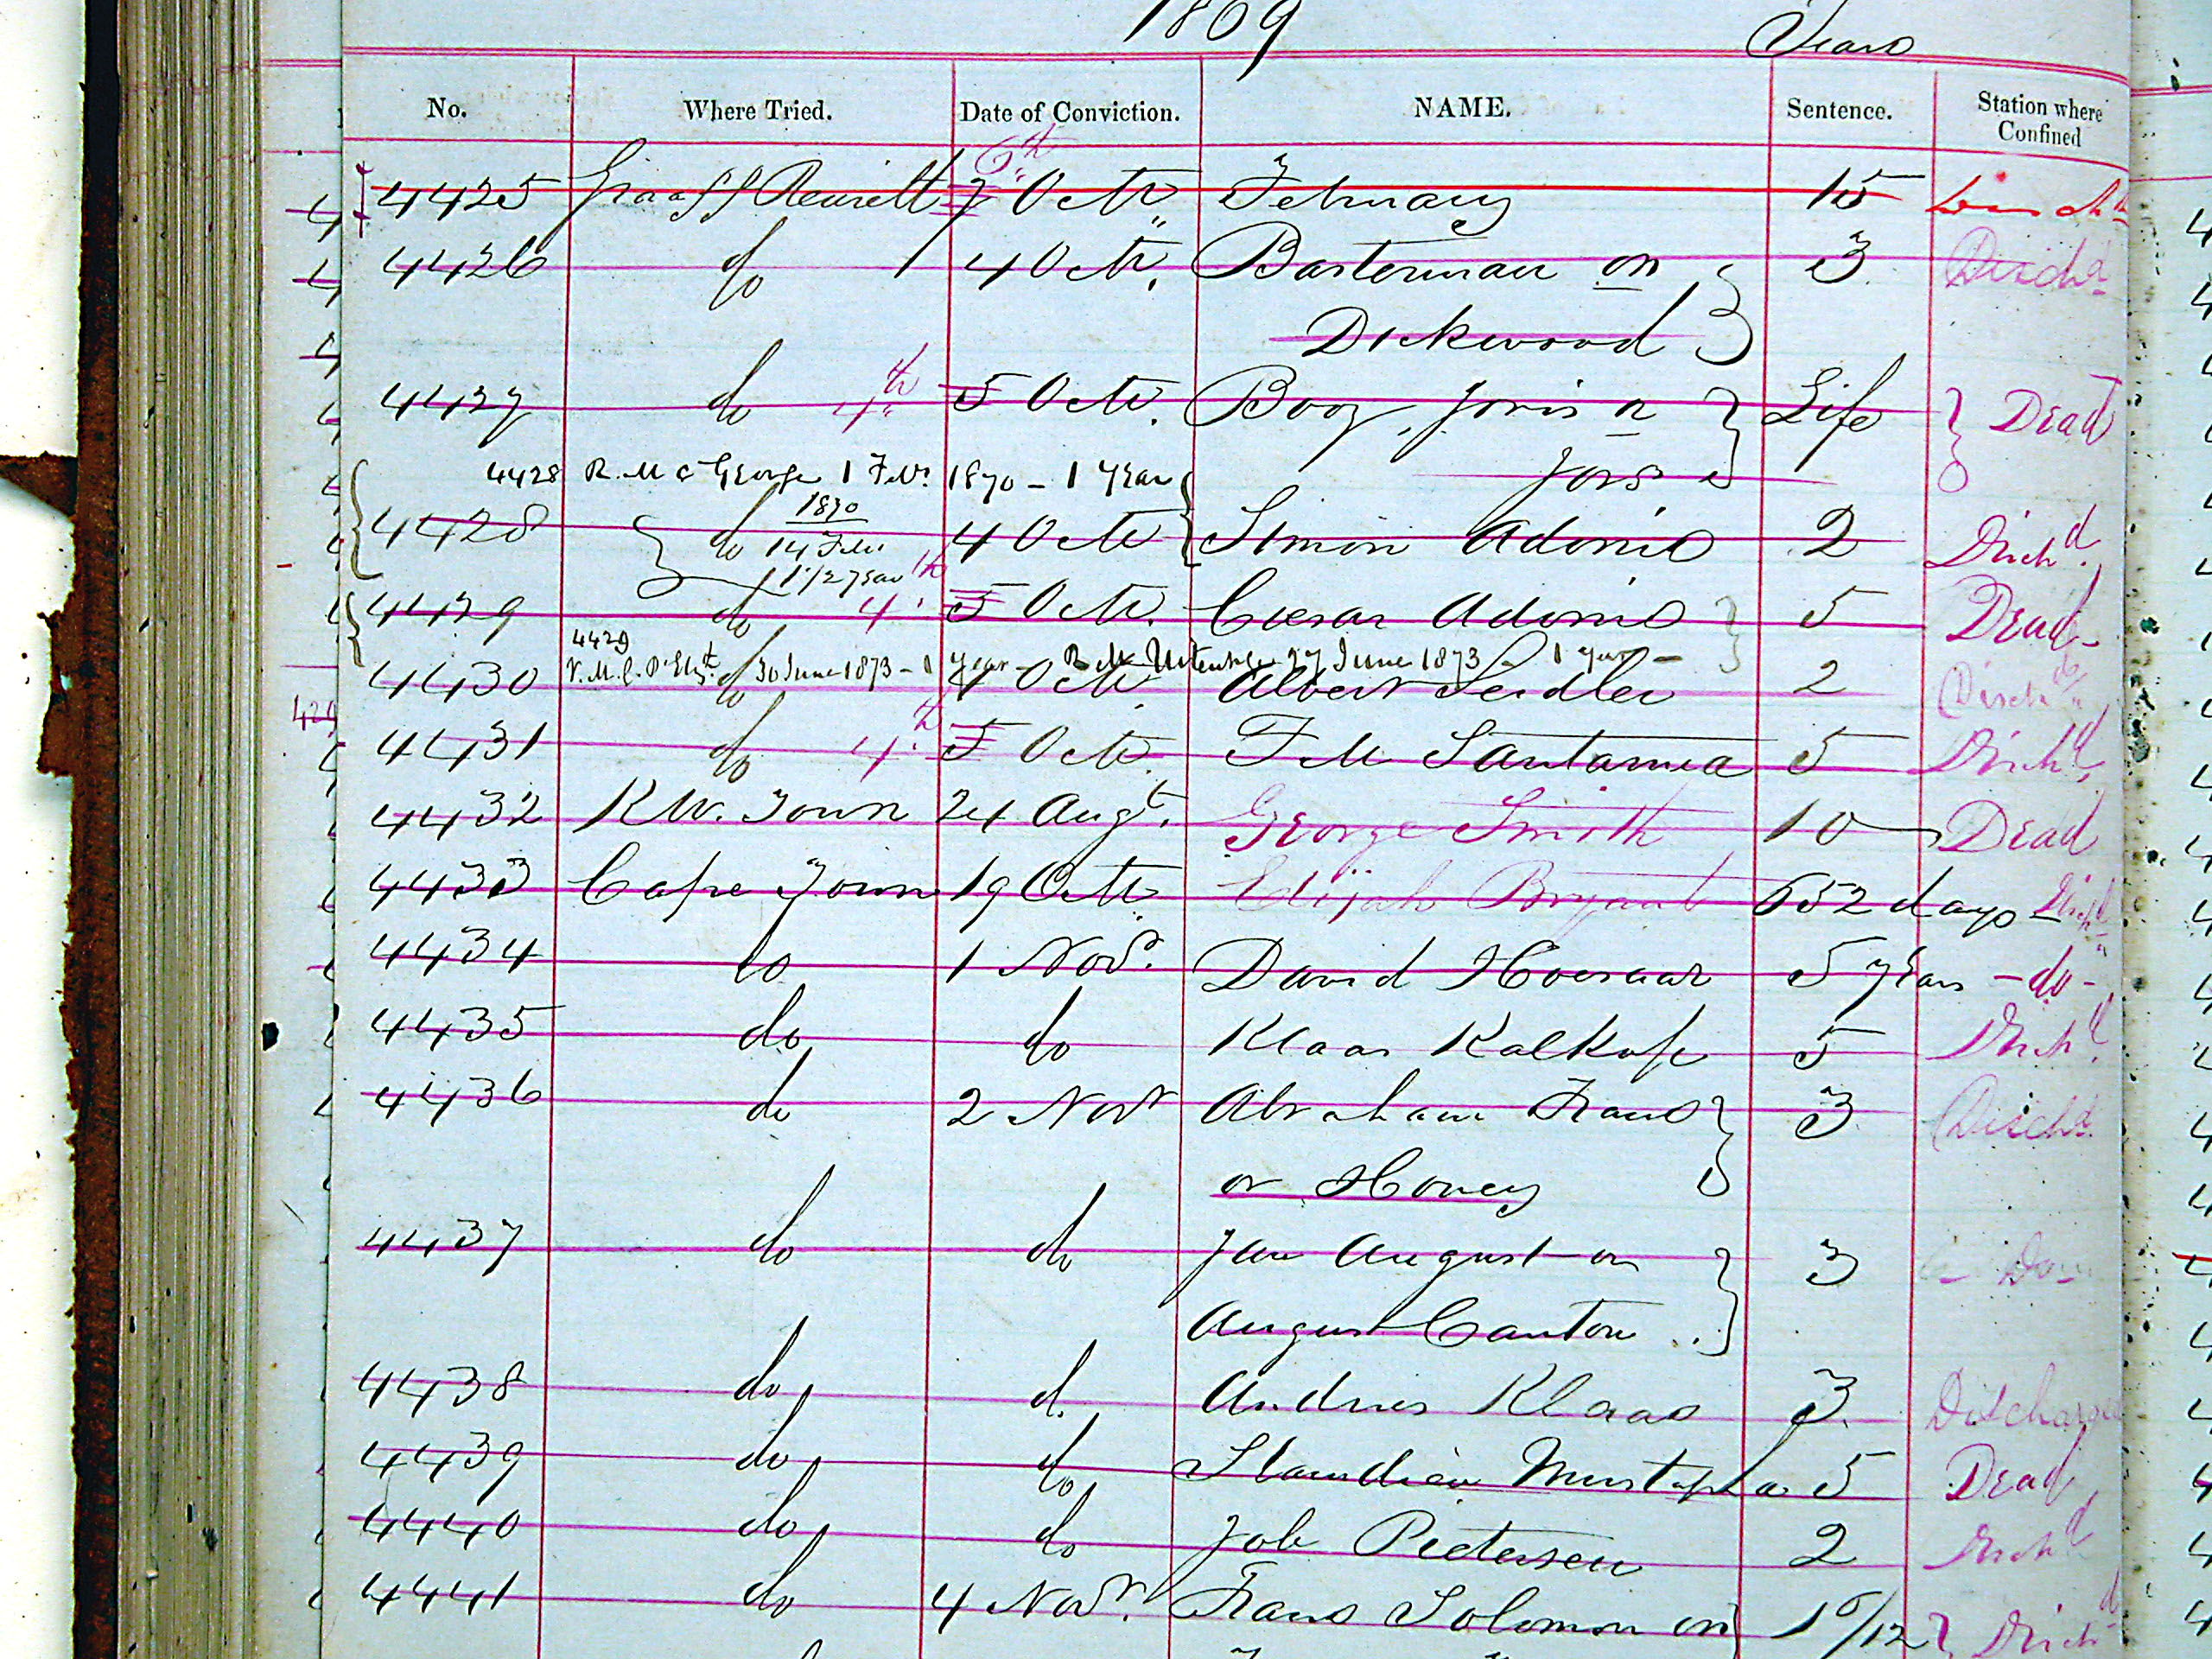 1869
Years
No. Where Tried. Date of Conviction. NAME. Sentence. Station where Confined
6th
4425 Graaff Reinett 7 Octr February 15 Disch
4426 do 4 Octr. Basterman or 3 Dischd
Dickwood
4427 do 4th 5 Octr. Booy, Joris or Life Dead
Jors
4428 R. M C George 1 Febr 1870 - 1 year
1870
4428 do 14 Febr 4 Octr Simon Adonis 2 Dischd.
1 1/2 year
4429 do 4th 5 Octr. Caesar Adonis 5 Dead
4429 R.M.C. P. Elizth 30 June 1873 - 1 year - R M Utenhge 27 June 1873 - 1 year -
4430 do 4 Octr Albert Seidler 2 Dischd
4431 do 4th 5 Octr. F M Santamea 5 Dischd.
4432 K W. Town 24 Augt. George Smith 10 Dead
4433 Cape Town 19 Octr Elijah Bryant 652 days Dischd
4434 do 1 Novr. David 5 years - do -
4435 do do Klaas Kalkop 5 Dischd.
4436 do 2 Novr Abraham Frans 3 Dischd.
or Honey
4437 do do Jan August or 3 Do
August Canton
4438 do d. Andries Klaas 3. Discharged
4439 do do Mustapha 5 Dead
4440 do do Job Pietersen 2 Dischd
4441 do 4 Novr. Frans Solomon or 1 6/12 Dischd